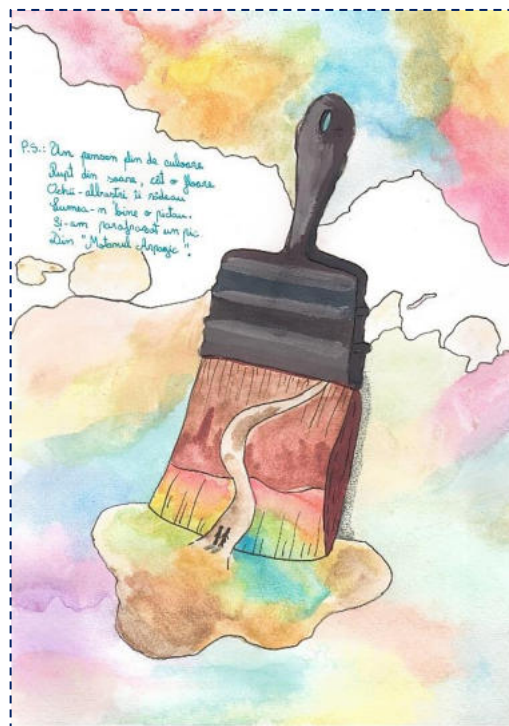 P.S.: Un penson plin de culoare
Rupt din soare, cât o floare
Ochii-albaștri îi râdeau
Lumea-n bine o pictau.
Și-am parafrazat un pic
Din "Motanul Arpagic".